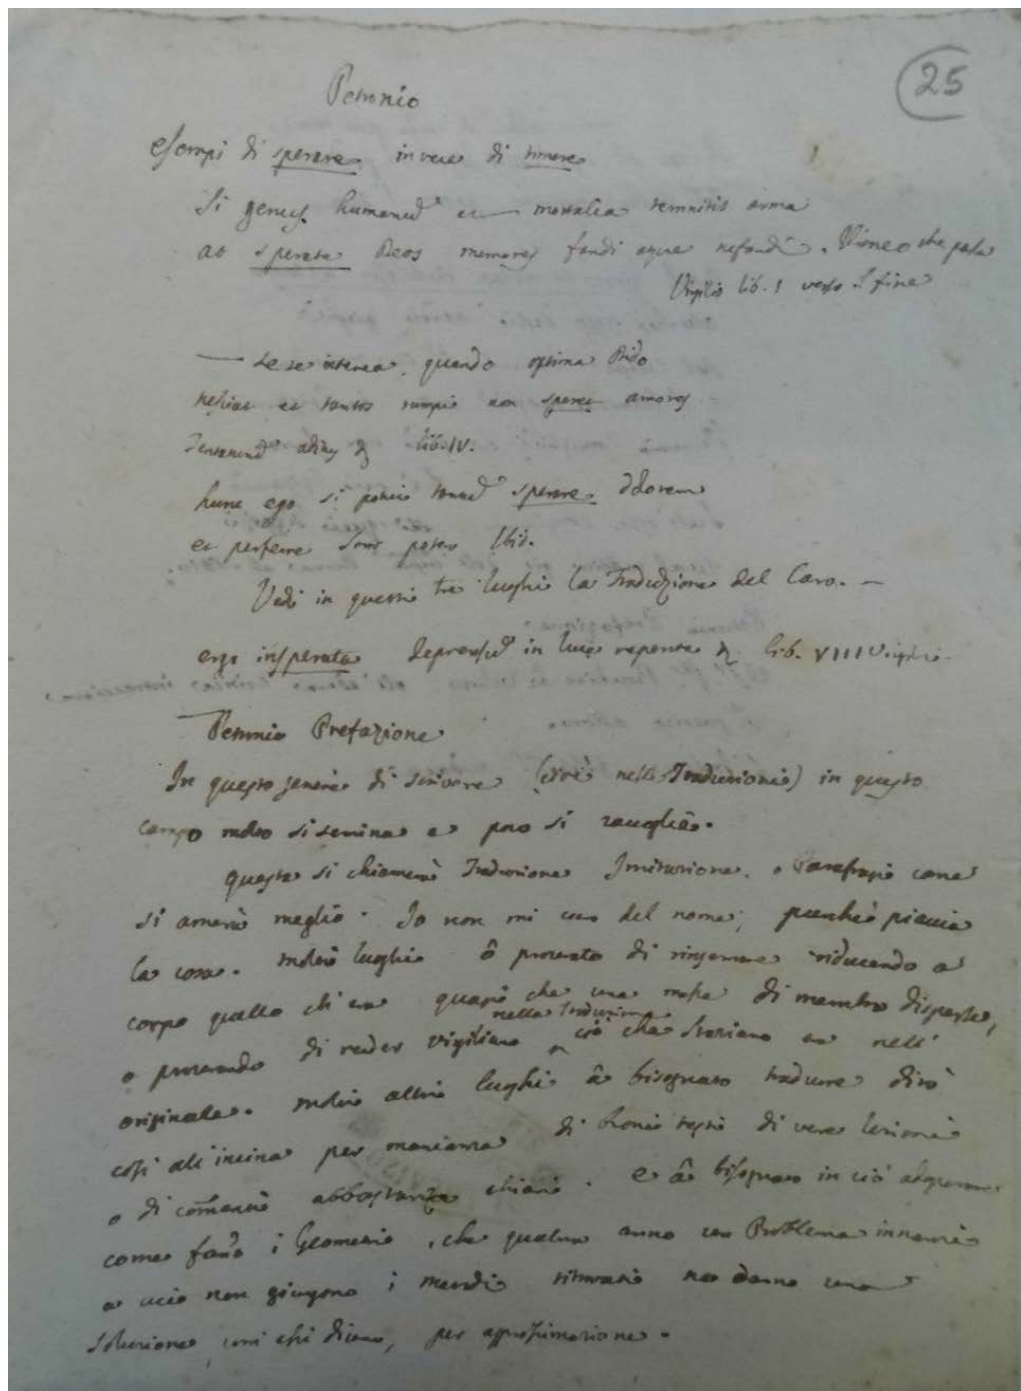 25
Petronio
Esempi di sperare in vece di temere
Si genus humanū et mortalia temnitis arma
at sperate Deos memores fandi atque nefandi. Ilioneo che parla
Virgilio lib. 1 verso fine
— se se interea, quando optima Dido
nesciat et tantos rumpi non speret amores
Tentaturū aditus lib. IV.
hunc ego si potui tantū sperare dolorem
et perferre soror potero Ibid.
Vedi in questi tre luoghi la Traduzione del Caro. —
ergo insperata deprensū in luce repente lib. VIII Virgilio
Petronio Prefazione
In questo genere di scrivere (cioè nelle Traduzioni) in questo
campo molto si semina e poco si raccoglie.
questa si chiamerà Traduzione Imitazione, o Parafrasi come
si amerà meglio. Io non mi curo del nome, purchè piaccia
la cosa. Molti luoghi ô procurato di rinserrare riducendo a
corpo quello ch'era quasi che una massa di membra disperse,
e procurando di render virgiliano nella Traduzione ciò che Staziano era nell'
originale. Molti altri luoghi â bisognato tradurre dirò
così all'incirca per mancanza di buoni testi di vere lezioni
o di comenti abbastanza chiari. e â bisognato in ciò
come fano i Geometri, che qualora anno un Problema innanzi
a cui non giugono i metodi ritrovati ne danno una
soluzione, com'essi dicono, per approssimazione.